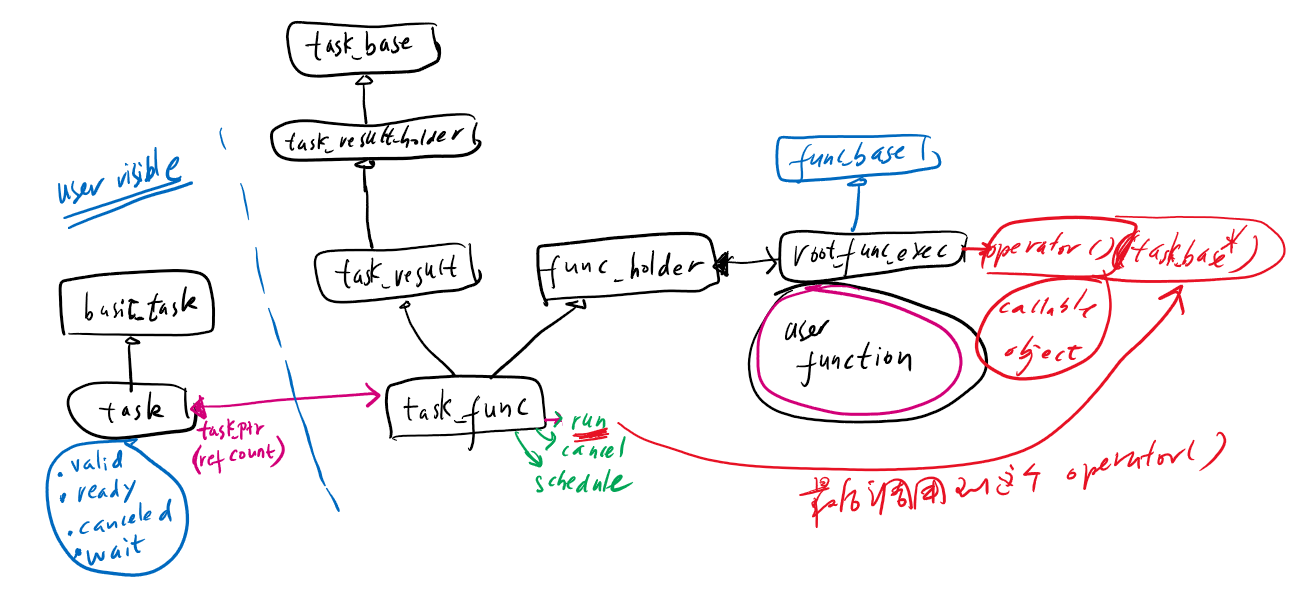 task_base
task_result_holder
user visible
func_base
task_result
func_holder
root_func_exec
operator() (task_base*)
basic_task
user
function
callable
object
task
task_ptr
(ref count)
task_func
run
cancel
schedule
• valid
• ready
• canceled
• wait
最后调用到这个 operator()